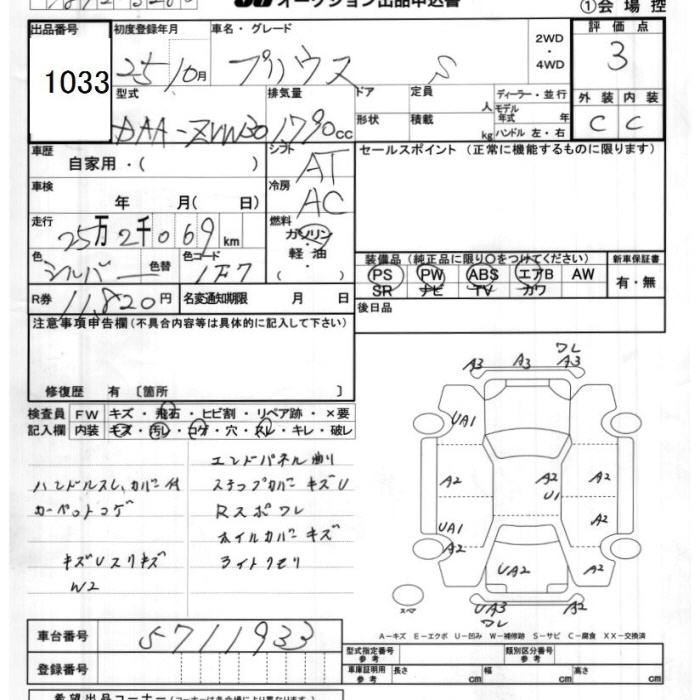 オークション出品申込書
①会場控
出品番号 1033
初度登録年月 25 10月
車名・グレード プリウス S
2WD・4WD
評価点 3
外装 C 内装 C
型式 DAA-ZVW30
排気量 1790cc
ドア 形状
定員 人
積載 kg
ディーラー・並行
モデル年式 年
ハンドル 左・右
車歴 自家用・( )
シフト AT
セールスポイント (正常に機能するものに限ります)
車検 年 月( 日)
冷房 AC
走行 25万2千069km
燃料 ガソリン・軽油・( )
色 シルバー 色替
色コード 1F7
装備品 (純正品に限り○をつけてください)
新車保証書 有・無
PS PW ABS エアB AW
SR ナビ TV カワ
R券 11,820円
名変通知期限 月 日
後日品
注意事項申告欄 (不具合内容等は具体的に記入して下さい)
修復歴 有 〔箇所 〕
検査員 FW キズ・飛石・ヒビ割・リペア跡・×要
記入欄 内装 キズ・汚レ・コゲ・穴・スレ・キレ・破レ
エンドパネル曲り
ハンドルスレ、カバー付 ステップカバーキズU
カーペットコゲ Rスポワレ
ホイルカバーキズ
キズUスリキズ ライトクモリ
W2
ワレ
A3 A3 A3
UA1
A2 A2 A2
U1
UA1 A2
A2
UA2 A2
スペア
UA3 A2
ワレ
A-キズ E-エクボ U-凹み W-補修跡 S-サビ C-腐食 XX-交換済
車台番号 5711933
型式指定番号 参考
類別区分番号 参考
登録番号
車庫証明用 参考 長さ cm 幅 cm 高さ cm
希望出品コーナー